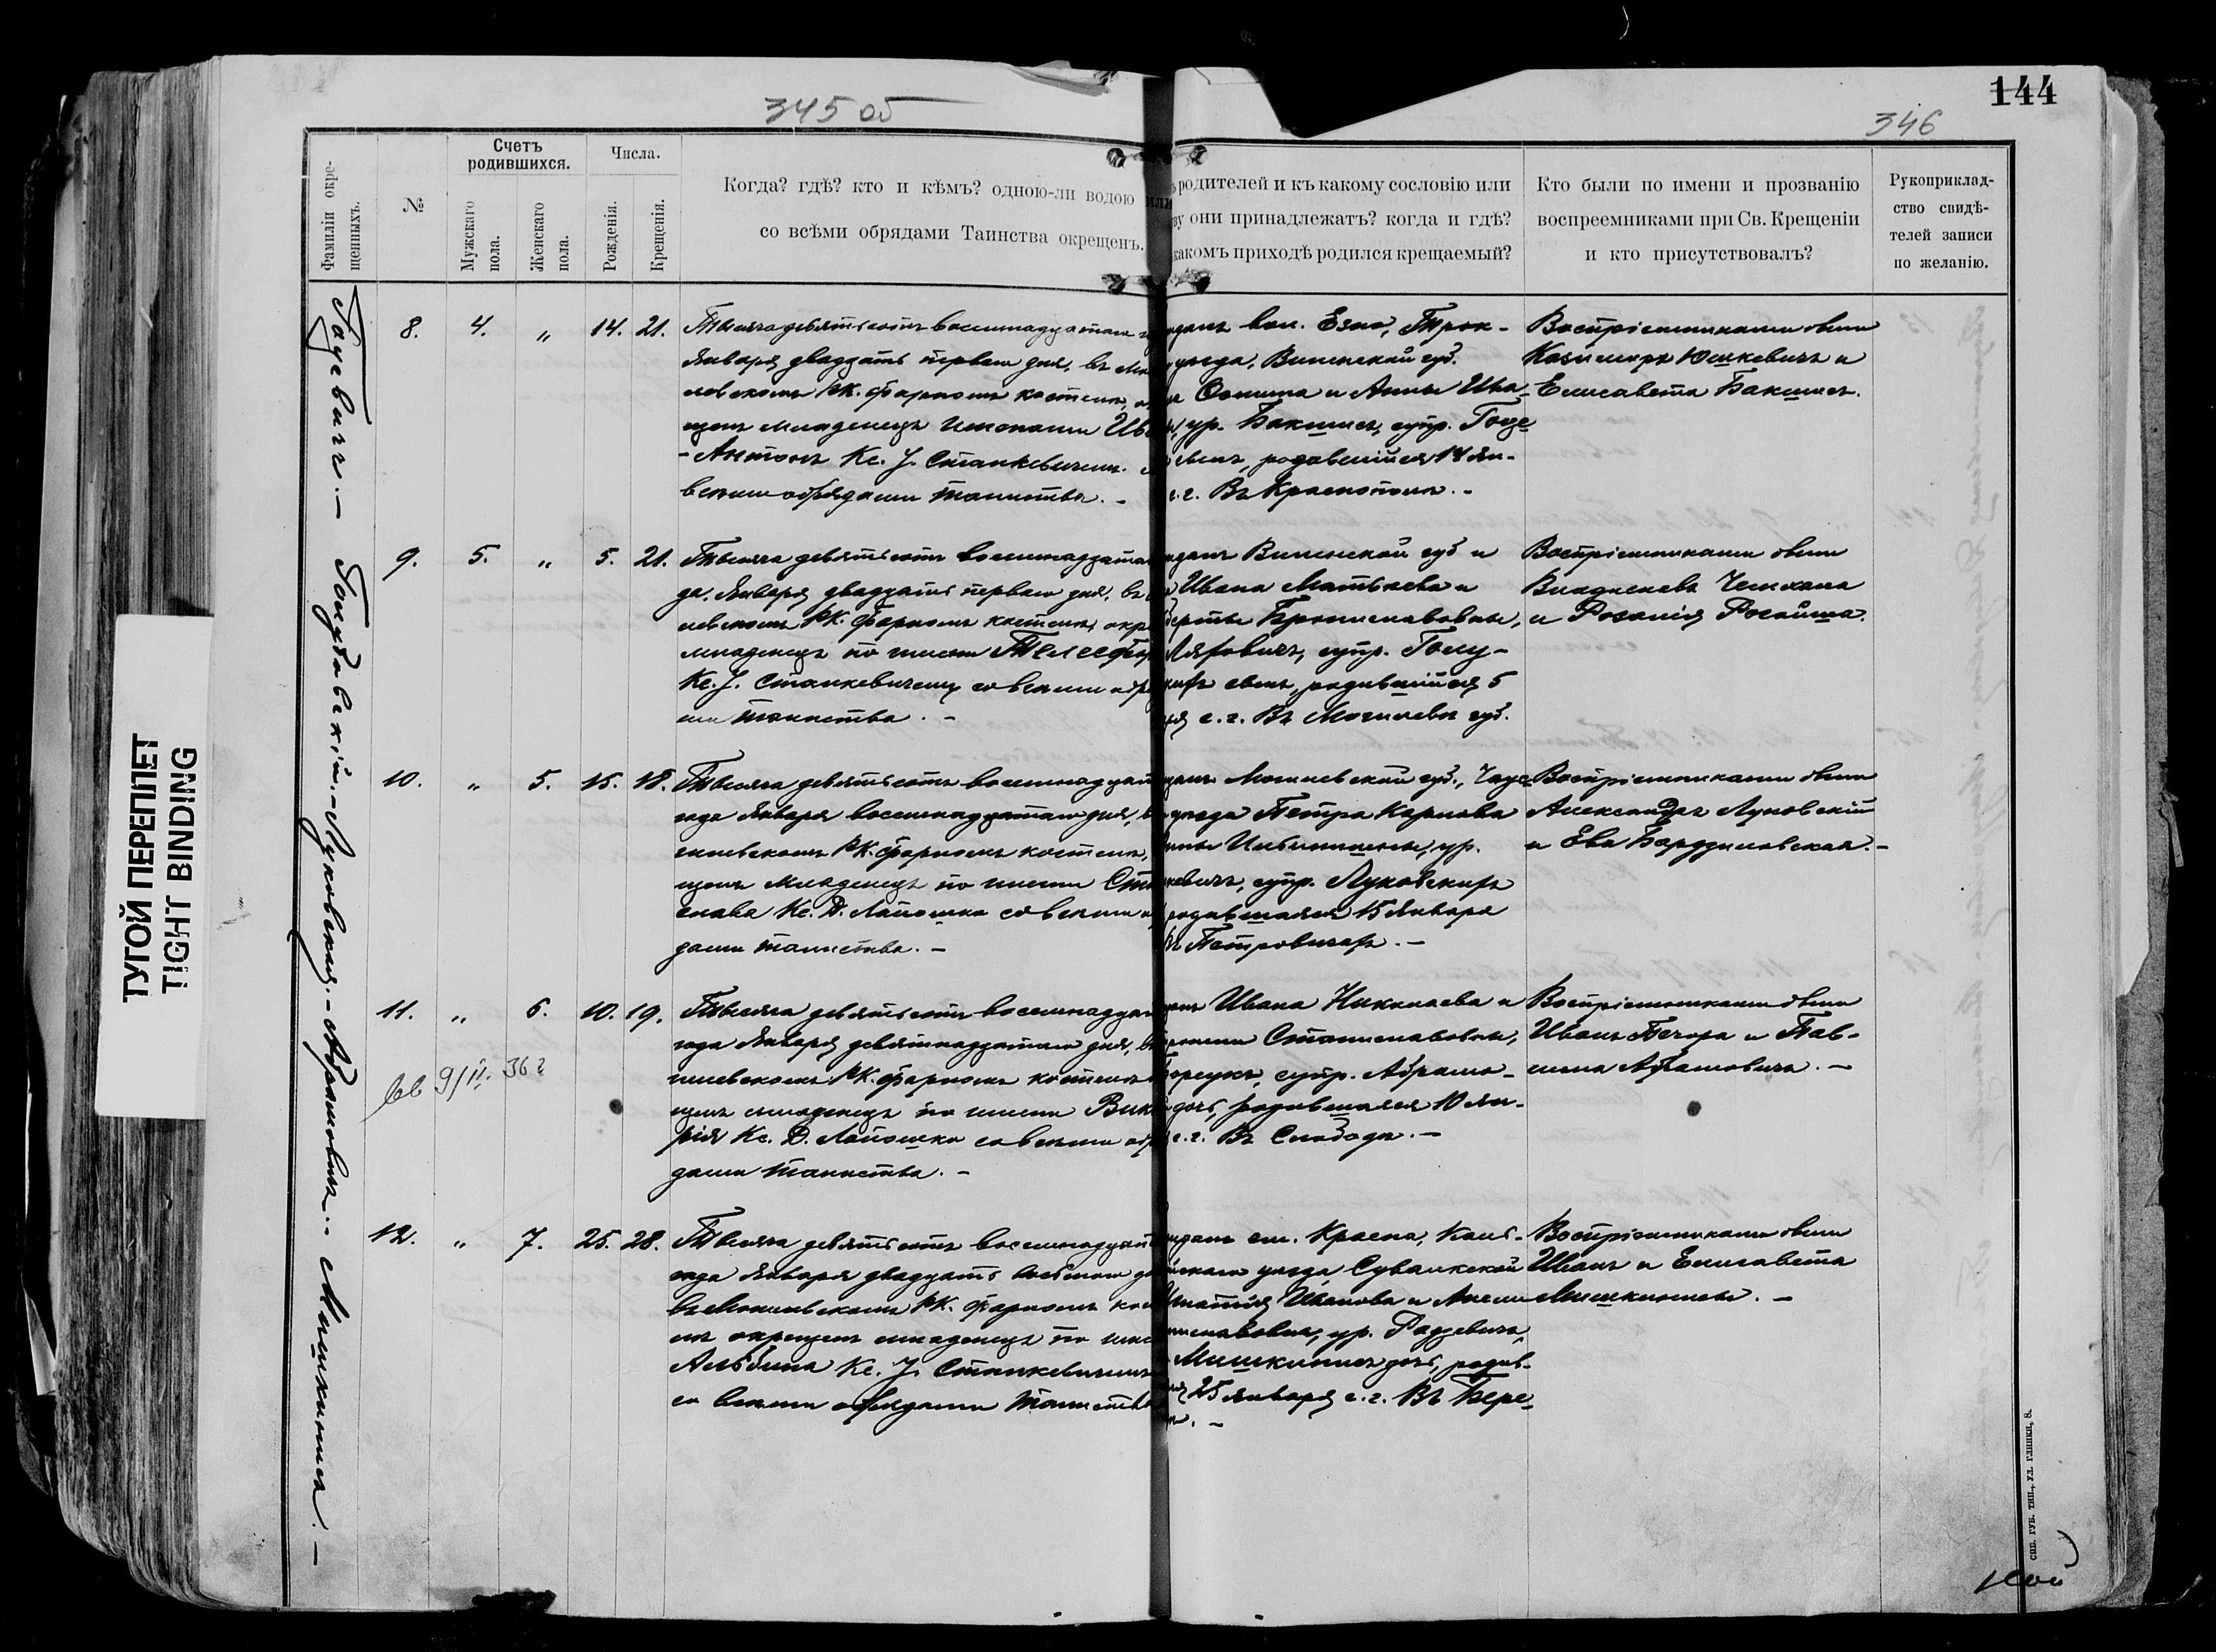 144
345 об
346
Фамиліи окре-
щенныхъ.
№
Счетъ
родившихся.
Мужскаго
пола.
Женскаго
пола.
Числа.
Рожденія.
Крещенія.
Когда? гдѣ? кто и кѣмъ? одною-ли водою или
со всѣми обрядами Таинства окрещенъ.
родителей и къ какому сословію или
ву они принадлежатъ? когда и гдѣ?
какомъ приходѣ родился крещаемый?
Кто были по имени и прозванію
воспреемниками при Св. Крещеніи
и кто присутствовалъ?
Рукоприклад-
ство свидѣ-
телей записи
по желанію.
8. 4. „ 14. 21.
Тысяча девятьсотъ восемнадцатаго
Января двадцать перваго дня, въ Мо
левскомъ РК. фарномъ костелѣ,
щенъ младенецъ именами
-Антонъ Кс. J. Станкевичемъ.
всѣми обрядами таинства. -
вол. Езно, Трок-
уѣзда, Виленской губ.
Осипа и Анны Ива-
ур. Бакшисъ, супр. Гоце
сынъ, родившійся 14 Ян-
с.г. Въ Краснополи. -
Воспріемниками были
Казимиръ Юшкевичъ и
Елисавета Бакшисъ.
9. 5. „ 5. 21.
Тысяча девятьсотъ восемнадцата
да, Января двадцать перваго дня, въ
левскомъ РК. фарномъ костелѣ, окр
младенецъ по имени Телесфор
Кс. J. Станкевичемъ со всѣми обр
ми таинства. -
Виленской губ и
Ивана Матвѣева и
Брониславовны,
супр. Голу-
сынъ, родившійся 5
с.г. Въ Могилевѣ губ.
Воспріемниками были
Владиславъ
и Розалія
10. „ 5. 15. 18.
Тысяча девятьсотъ восемнадцат
года Января восемнадцатаго дня,
гилевскомъ РК. фарномъ костелѣ,
щенъ младенецъ по имени Ста
слава Кс. D. Лапошко со всѣми
дами таинства. -
Могилевской губ., Чаус
уѣзда Петра Карлова
ур.
кевичъ, супр. Луковскихъ
родившаяся 15 Января
Въ Петровичахъ. -
Воспріемниками были
Александръ Луковскій
и Ева Бардзиловская. -
11. „ 6. 10. 19.
Тысяча девятьсотъ восемнадцат
года Января девятнадцатаго дня, въ
гилевскомъ РК. фарномъ костелѣ
щенъ младенецъ по имени Викто
рія Кс. D. Лапошко со всѣми обр
дами таинства. -
9/II 36 г
Ивана Николаева и
Станиславовны,
супр. Абрамо-
дочь, родившаяся 10 Ян-
с.г. Въ Слободѣ. -
Воспріемниками были
Иванъ Печора и Пав-
лина Абрамовичъ. -
12. „ 7. 25. 28.
Тысяча девятьсотъ восемнадцат
года Января двадцать восьмого д
въ Могилевскомъ РК. фарномъ кос
лѣ окрещенъ младенецъ по име
Альбина Кс. J. Станкевичемъ
со всѣми обрядами таинства
гм. Красна, Каль-
скаго уѣзда Сувалкской
Игнатія Иванова и Анели
ниславовны, ур. Радзевичъ,
Мишкинисъ дочь, родив-
25 Января с.г. Въ Бере-
Воспріемниками были
Иванъ и Елисавета
Мишкинисы. -
Гоцевичъ. - Голубовскій. - Луковская. - Абрамовичъ. - Мишкинисъ. -
ТУГОЙ ПЕРЕПЛЕТ
TIGHT BINDING
СПБ. ГУБ. ТИП., УЛ. ГЛИНКИ, 8.